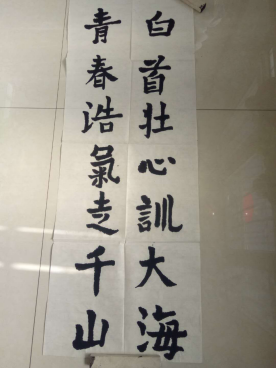 白首壮心訓大海
青春浩氣走千山